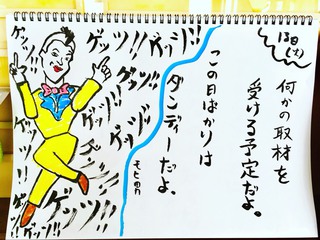 13日(土)
何かの取材を
受ける予定だよ。
この日ばかりは
ダンディーだよ。
ゲッツ!!
ゲッツ!!
ゲッツ!!
ゲッツ!!
ゲッツ!!
ゲッツ!!
ゲッツ!!
ゲッツ!!
ゲッツ!!
ゲッツ!!
ゲッツ!!